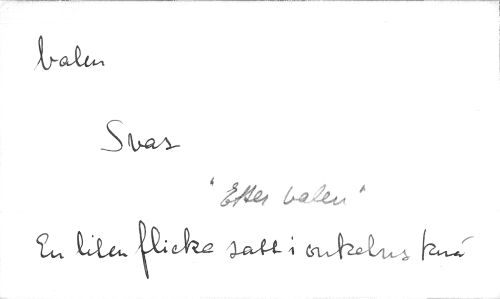 balen
Svar
"Efter balen"
En liten flicka satt i onkelns knä